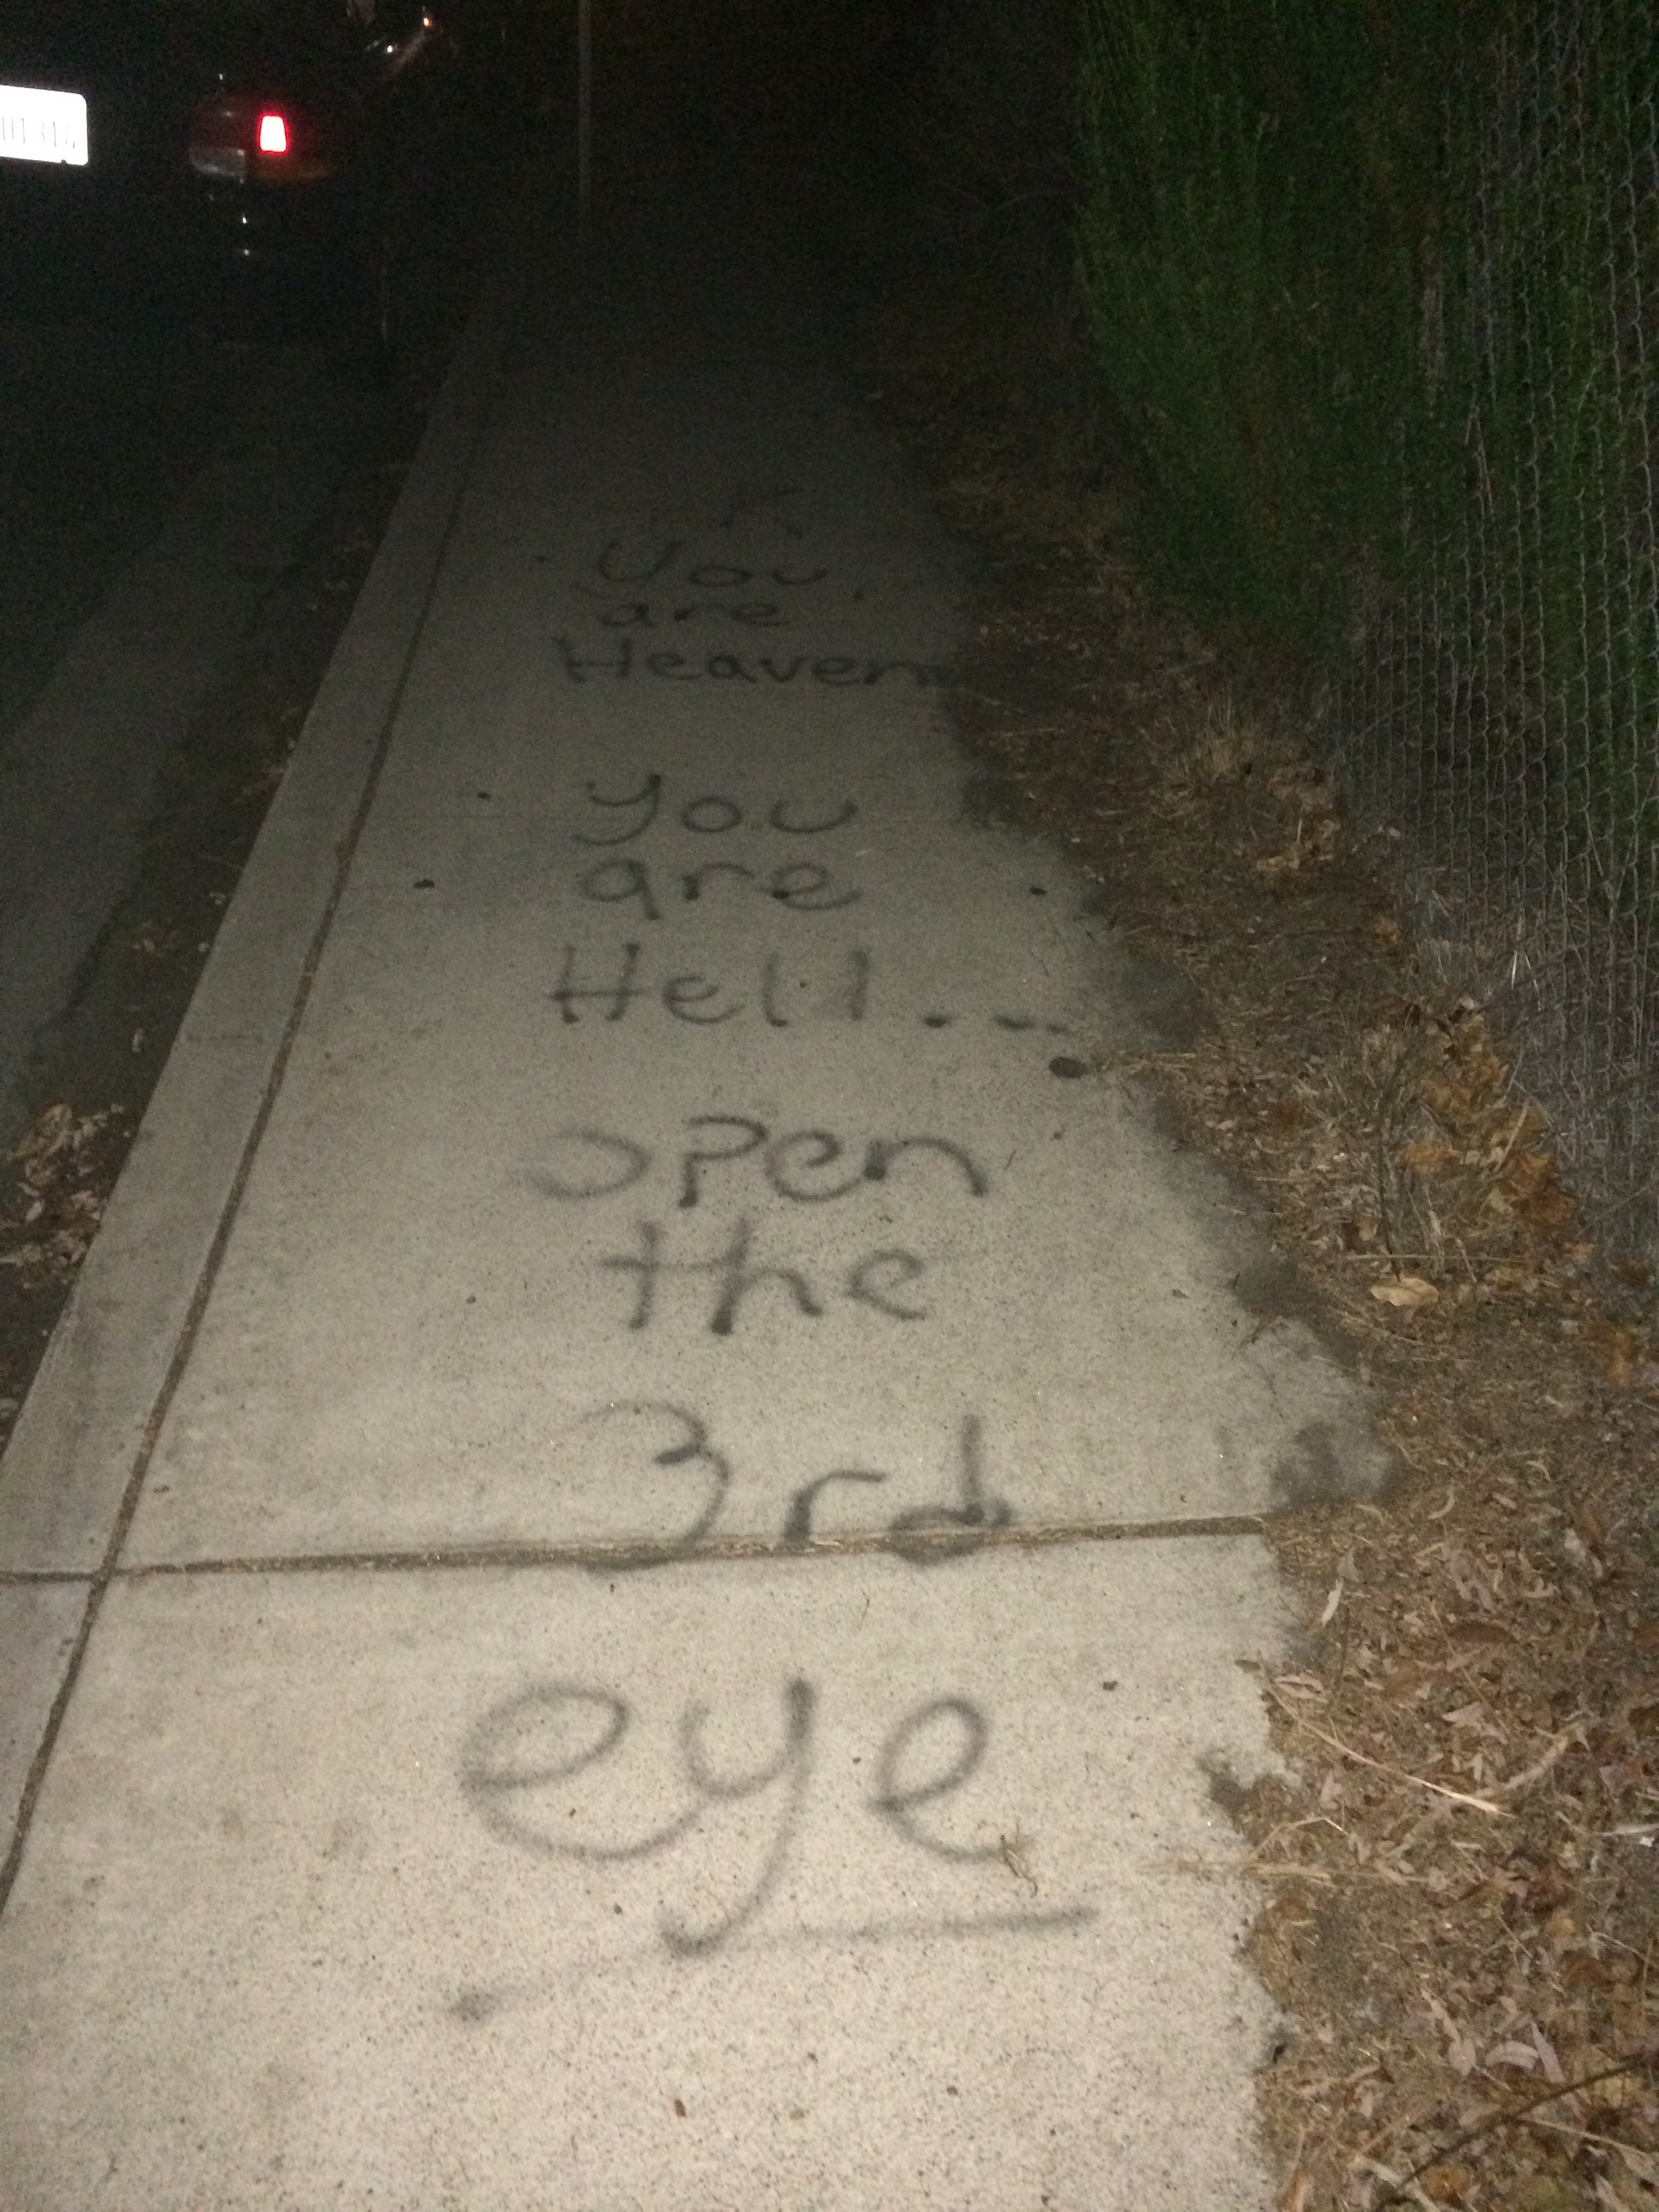 You
are
Heaven
you
are
Hell...
open
the
3rd
eye